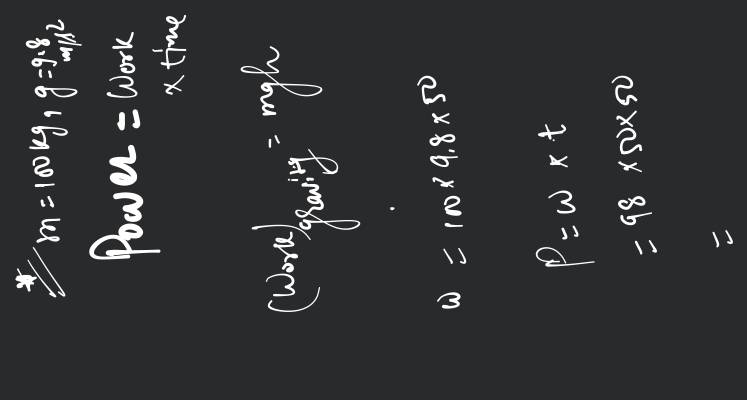 * // m = 100 kg, g = 9.8 m/s²
Power = Work
x time
(Work) gravity = mgh
w = 100 x 9.8 x 50
P = w x t
= 98 x 50 x 50
=